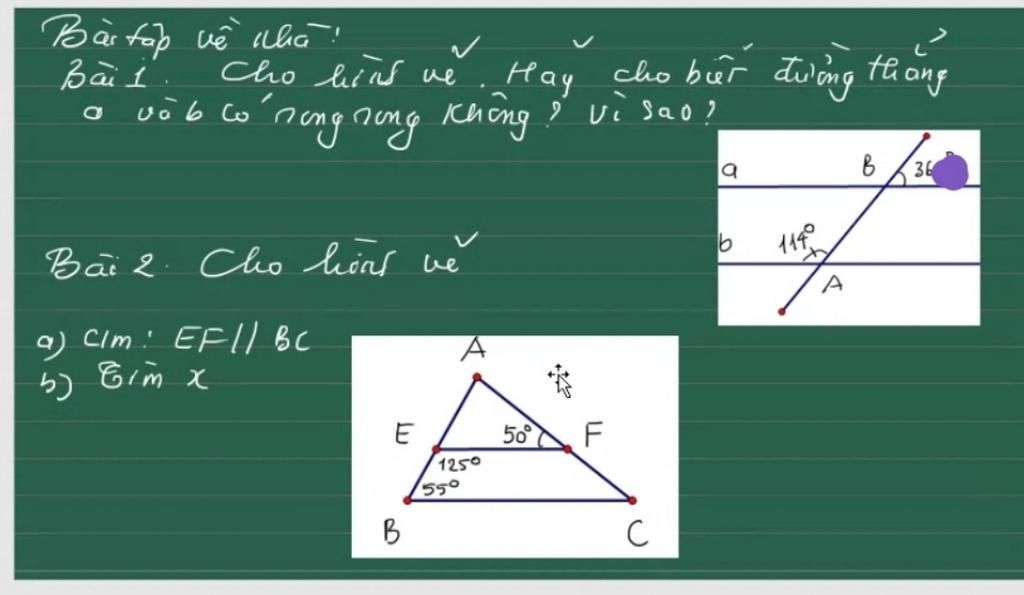 Bài tập về nhà!
Bài 1. Cho hình vẽ. Hãy cho biết đường thẳng
a và b có song song không? Vì sao?
a B 36
b 114°
A
Bài 2. Cho hình vẽ
a) C/m: EF // BC
b) Tìm x
A
E 50° F
125°
55°
B C